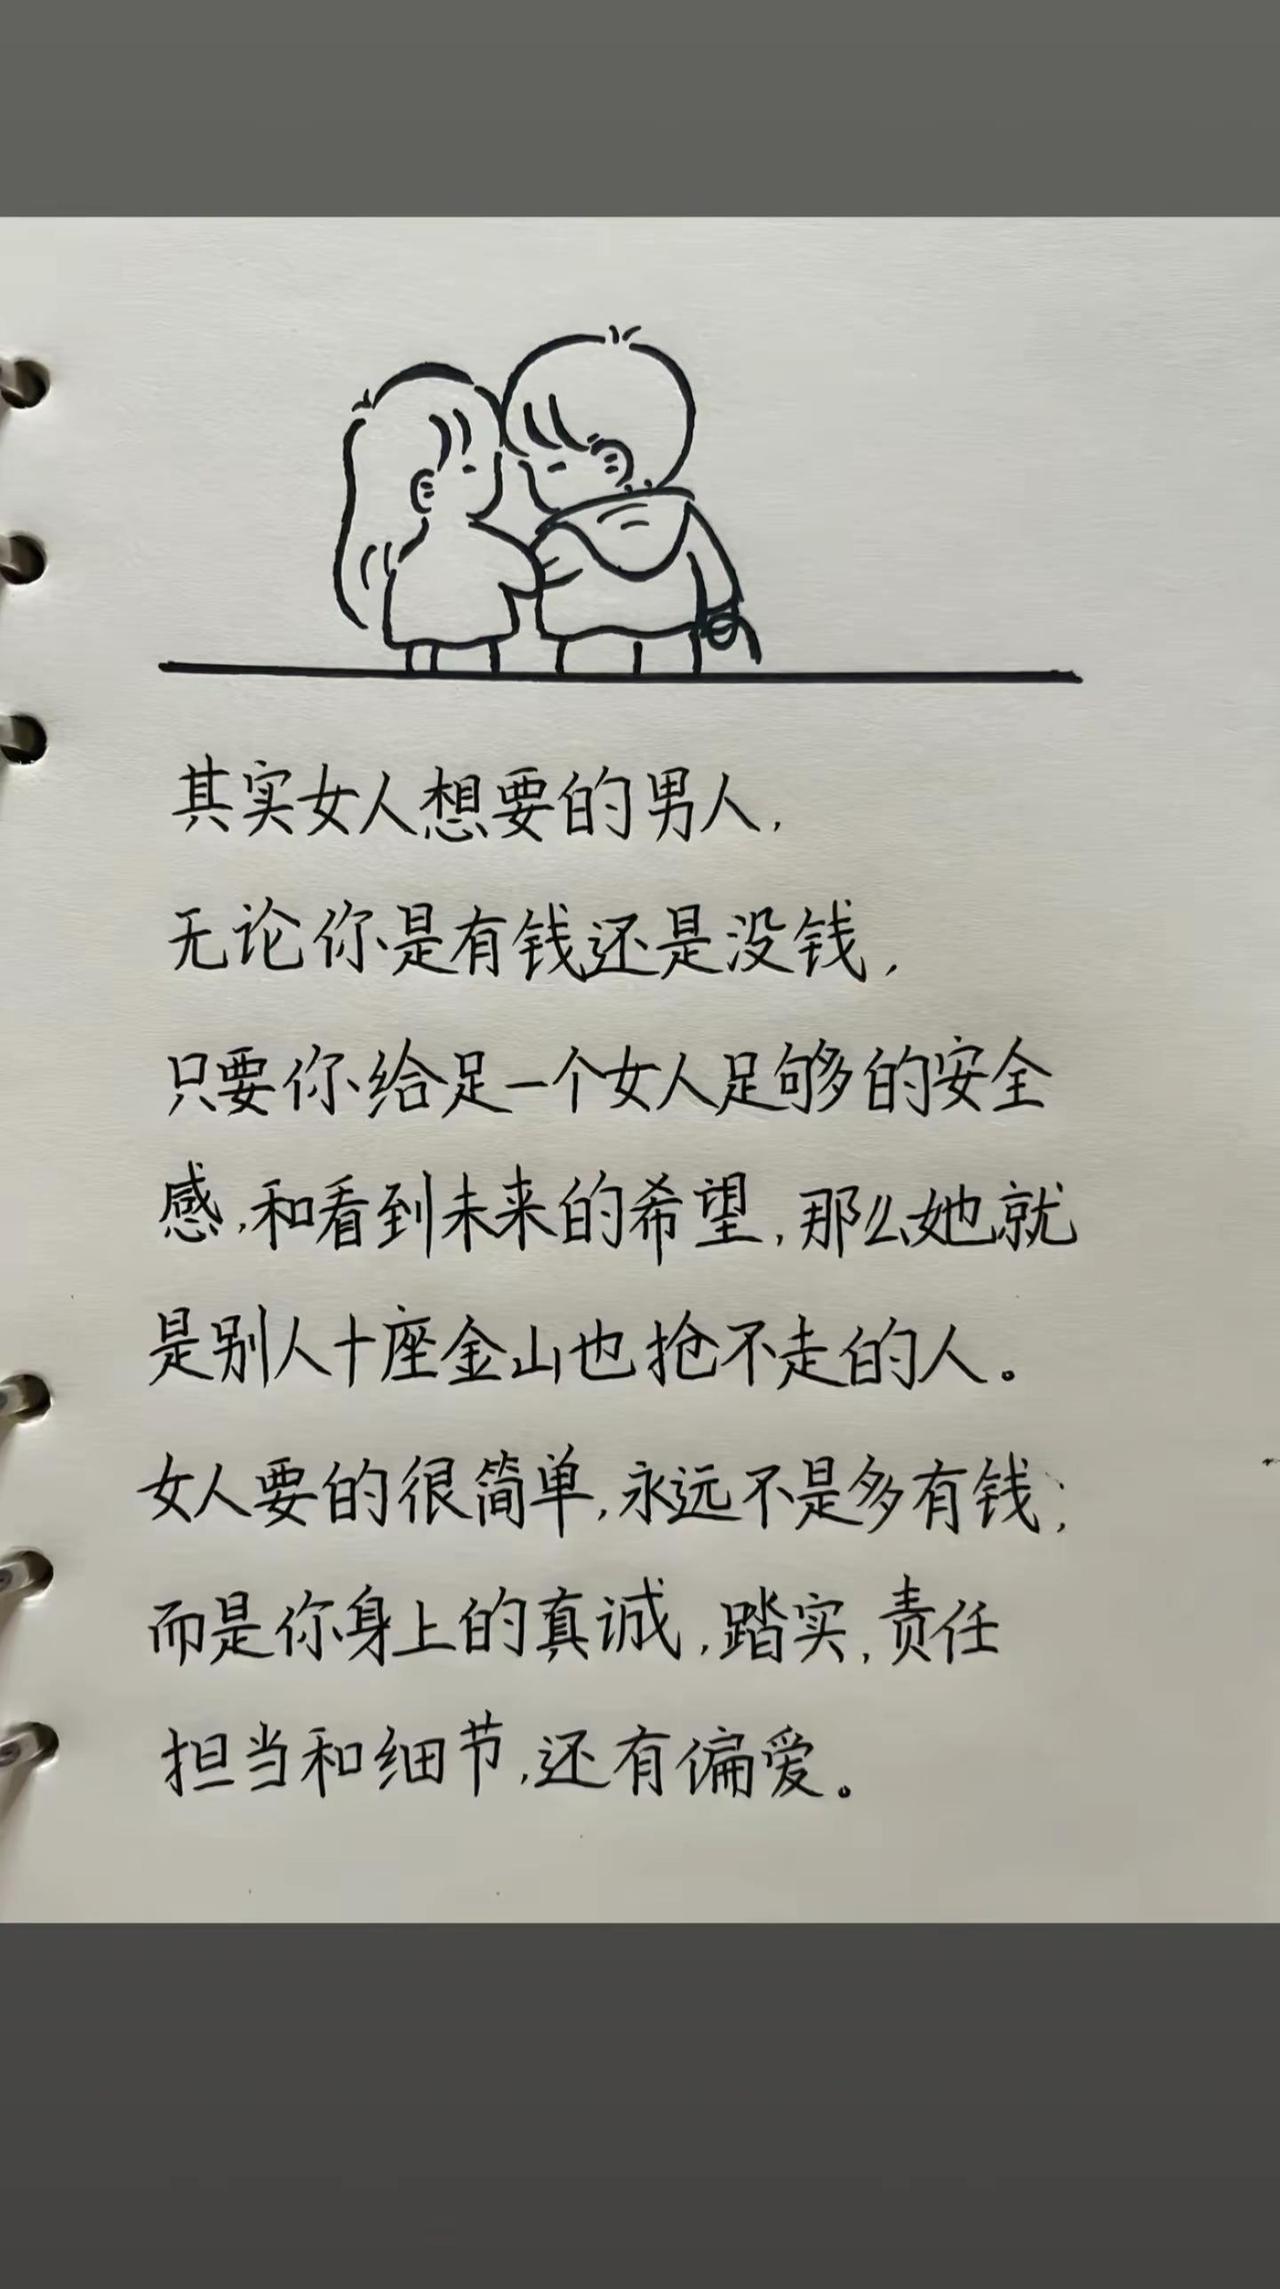 其实女人想要的男人,
无论你是有钱还是没钱,
只要你给足一个女人足够的安全
感,和看到未来的希望,那么她就
是别人十座金山也抢不走的人。
女人要的很简单,永远不是多有钱;
而是你身上的真诚,踏实,责任
担当和细节,还有偏爱。